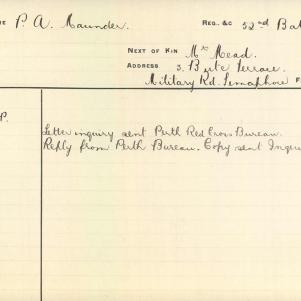 P. A. Maunder. REG. &C 52nd Bat
NEXT OF KIN Mrs Mead.
ADDRESS 3. Bute Terrace
Military Rd. Semaphore F
P.
Letter inquiry sent Perth Red Cross Bureau.
Reply from Perth Bureau. Copy sent Inquir